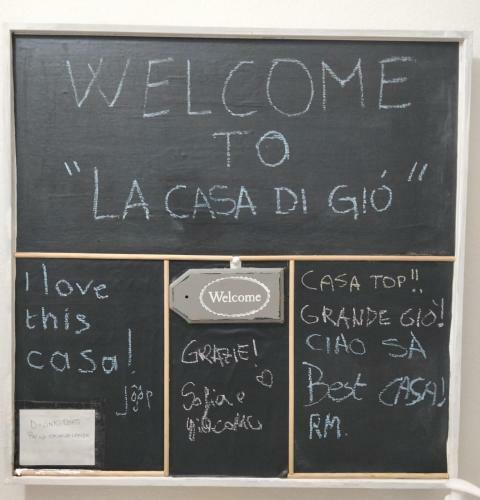 WELCOME
TO
"LA CASA DI GIÓ"
I love
this
casa!
Welcome
GRAZIE!
Sofia e
giacomo
CASA TOP!!
GRANDE GIÒ!
CIAO SÀ
Best CASA!
RM.